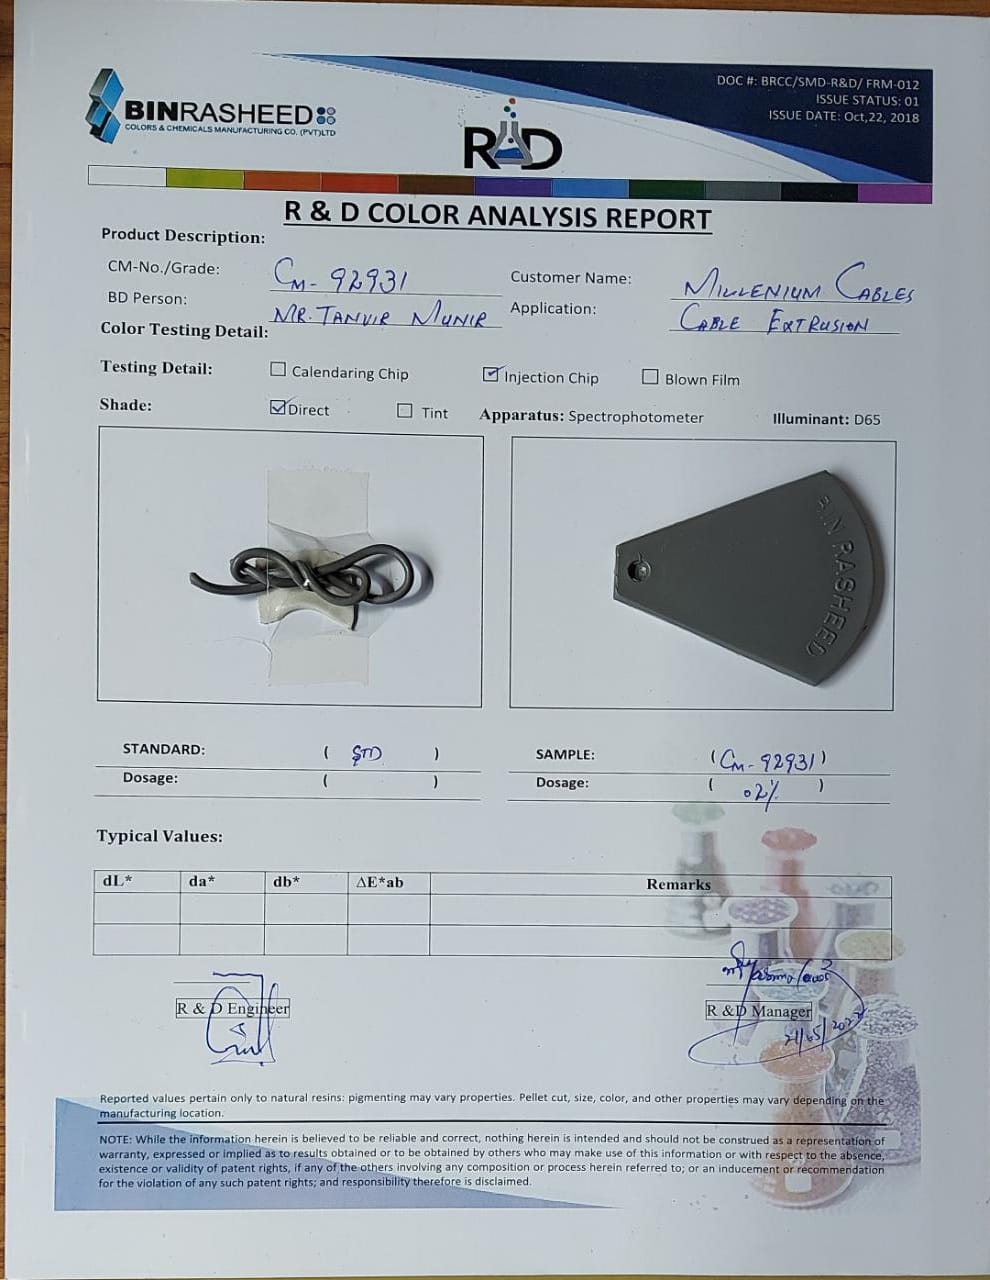 BINRASHEED
COLORS & CHEMICALS MANUFACTURING CO. (PVT)LTD
R&D
DOC #: BRCC/SMD-R&D/ FRM-012
ISSUE STATUS: 01
ISSUE DATE: Oct,22, 2018
R & D COLOR ANALYSIS REPORT
Product Description:
CM-No./Grade: CM-92931 Customer Name: MILLENIUM CABLES
BD Person: MR. TANVIR MUNIR Application: CABLE EXTRUSION
Color Testing Detail:
Testing Detail: Calendaring Chip Injection Chip Blown Film
Shade: Direct Tint Apparatus: Spectrophotometer Illuminant: D65
BIN RASHEED
STANDARD: ( STD ) SAMPLE: (CM-92931)
Dosage: ( ) Dosage: ( 02% )
Typical Values:
dL* da* db* ΔE*ab Remarks
R & D Engineer R &D Manager
Reported values pertain only to natural resins: pigmenting may vary properties. Pellet cut, size, color, and other properties may vary depending on the
manufacturing location.
NOTE: While the information herein is believed to be reliable and correct, nothing herein is intended and should not be construed as a representation of
warranty, expressed or implied as to results obtained or to be obtained by others who may make use of this information or with respect to the absence,
existence or validity of patent rights, if any of the others involving any composition or process herein referred to; or an inducement or recommendation
for the violation of any such patent rights; and responsibility therefore is disclaimed.